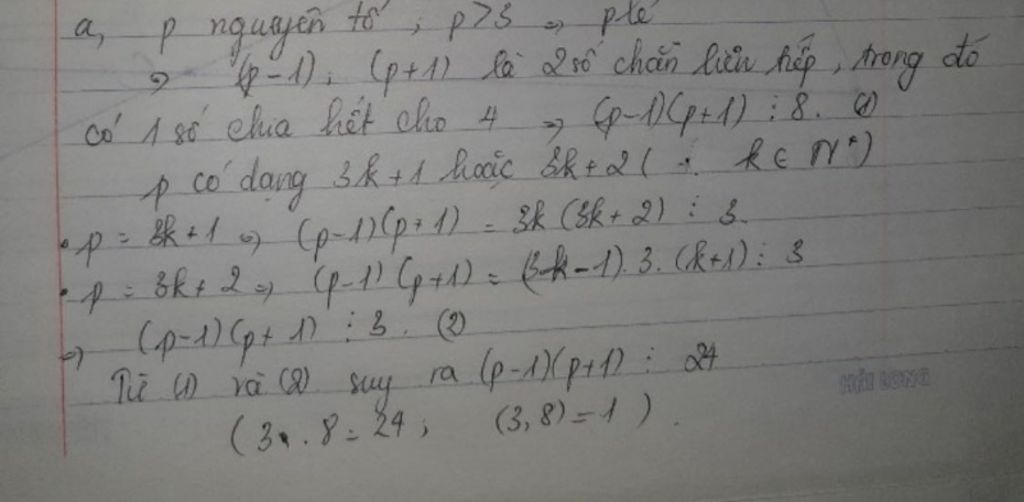 a, p nguyên tố, p>3 => p lẻ
=> (p-1); (p+1) là 2 số chẵn liên tiếp, trong đó
có 1 số chia hết cho 4 => (p-1)(p+1) ⋮ 8. (1)
p có dạng 3k+1 hoặc 3k+2 ( k ∈ N*)
• p = 3k+1 => (p-1)(p+1) = 3k(3k+2) ⋮ 3.
• p = 3k+2 => (p-1)(p+1) = (3k-1).3.(k+1) ⋮ 3
=> (p-1)(p+1) ⋮ 3. (2)
Từ (1) và (2) suy ra (p-1)(p+1) ⋮ 24
(3.8=24; (3,8)=1).
HẢI LONG